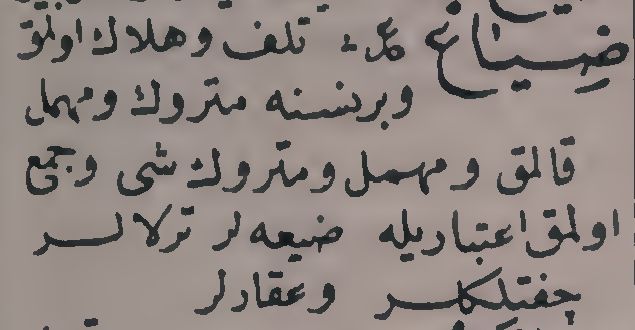 ضياع ع‍ تلف وهلاك اولمق
وبرنسنه متروك ومهمل
قالمق ومهمل ومتروك شى وجمع
اولمق اعتباريله ضيعه لر ترلالر
چفتلكلر وعقارلر